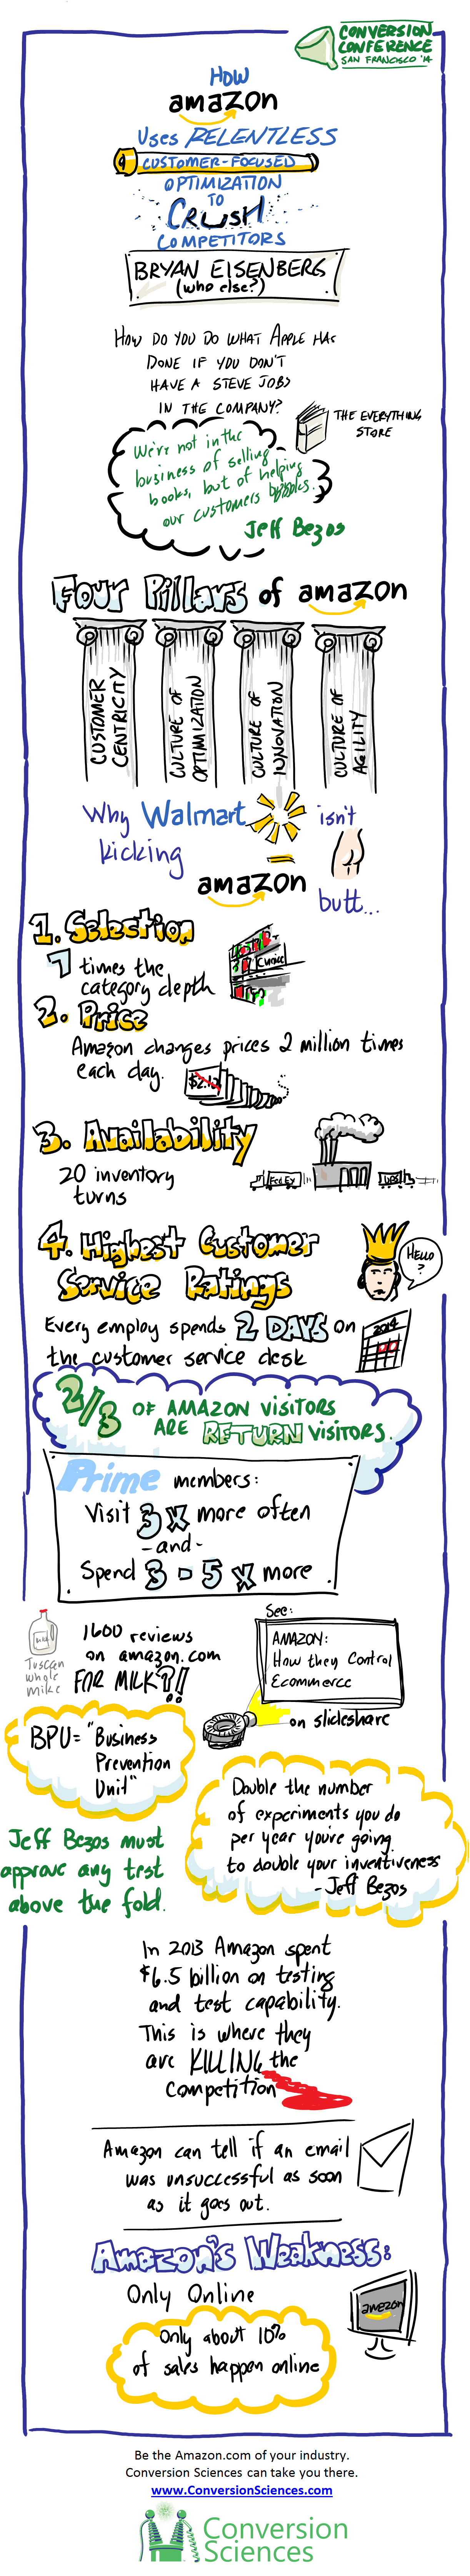 CONVERSION
CONFERENCE
SAN FRANCISCO '14
HOW
amazon
USES RELENTLESS
CUSTOMER-FOCUSED
OPTIMIZATION
TO
CRUSH
COMPETITORS
BRYAN EISENBERG
(who else?)
HOW DO YOU DO WHAT APPLE HAS
DONE IF YOU DON'T
HAVE A STEVE JOBS
IN THE COMPANY?
THE EVERYTHING
STORE
We're not in the
business of selling
books, but of helping
our customers
Jeff Bezos
Four Pillars of amazon
CUSTOMER
CENTRICITY
CULTURE OF
OPTIMIZATION
CULTURE OF
INNOVATION
CULTURE OF
AGILITY
Why Walmart isn't
kicking
amazon
butt...
1. Selection
7 times the
category depth
Choice
2. Price
Amazon changes prices 2 million times
each day.
3. Availability
20 inventory
turns
FedEx
UPS
4. Highest Customer
Service Ratings
HELLO
?
Every employ spends 2 DAYS on
the customer service desk
2014
2/3 OF AMAZON VISITORS
ARE RETURN VISITORS.
Prime members:
Visit 3x more often
-and-
Spend 3-5x more.
Tuscan
whole
milke
1600 reviews
on amazon.com
FOR MILK?!
See:
AMAZON:
How they Control
Ecommerce
on slideshare
BPU= "Business
Prevention
Unit"
Double the number
of experiments you do
per year you're going
to double your inventiveness
-Jeff Bezos
Jeff Bezos must
approve any test
above the fold.
In 2013 Amazon spent
$6.5 billion on testing
and test capability.
This is where they
are KILLING the
competition
Amazon can tell if an email
was unsuccessful as soon
as it goes out.
Amazon's Weakness:
Only Online
amezon
Only about 10%
of sales happen online
Be the Amazon.com of your industry.
Conversion Sciences can take you there.
www.ConversionSciences.com
Conversion
Sciences